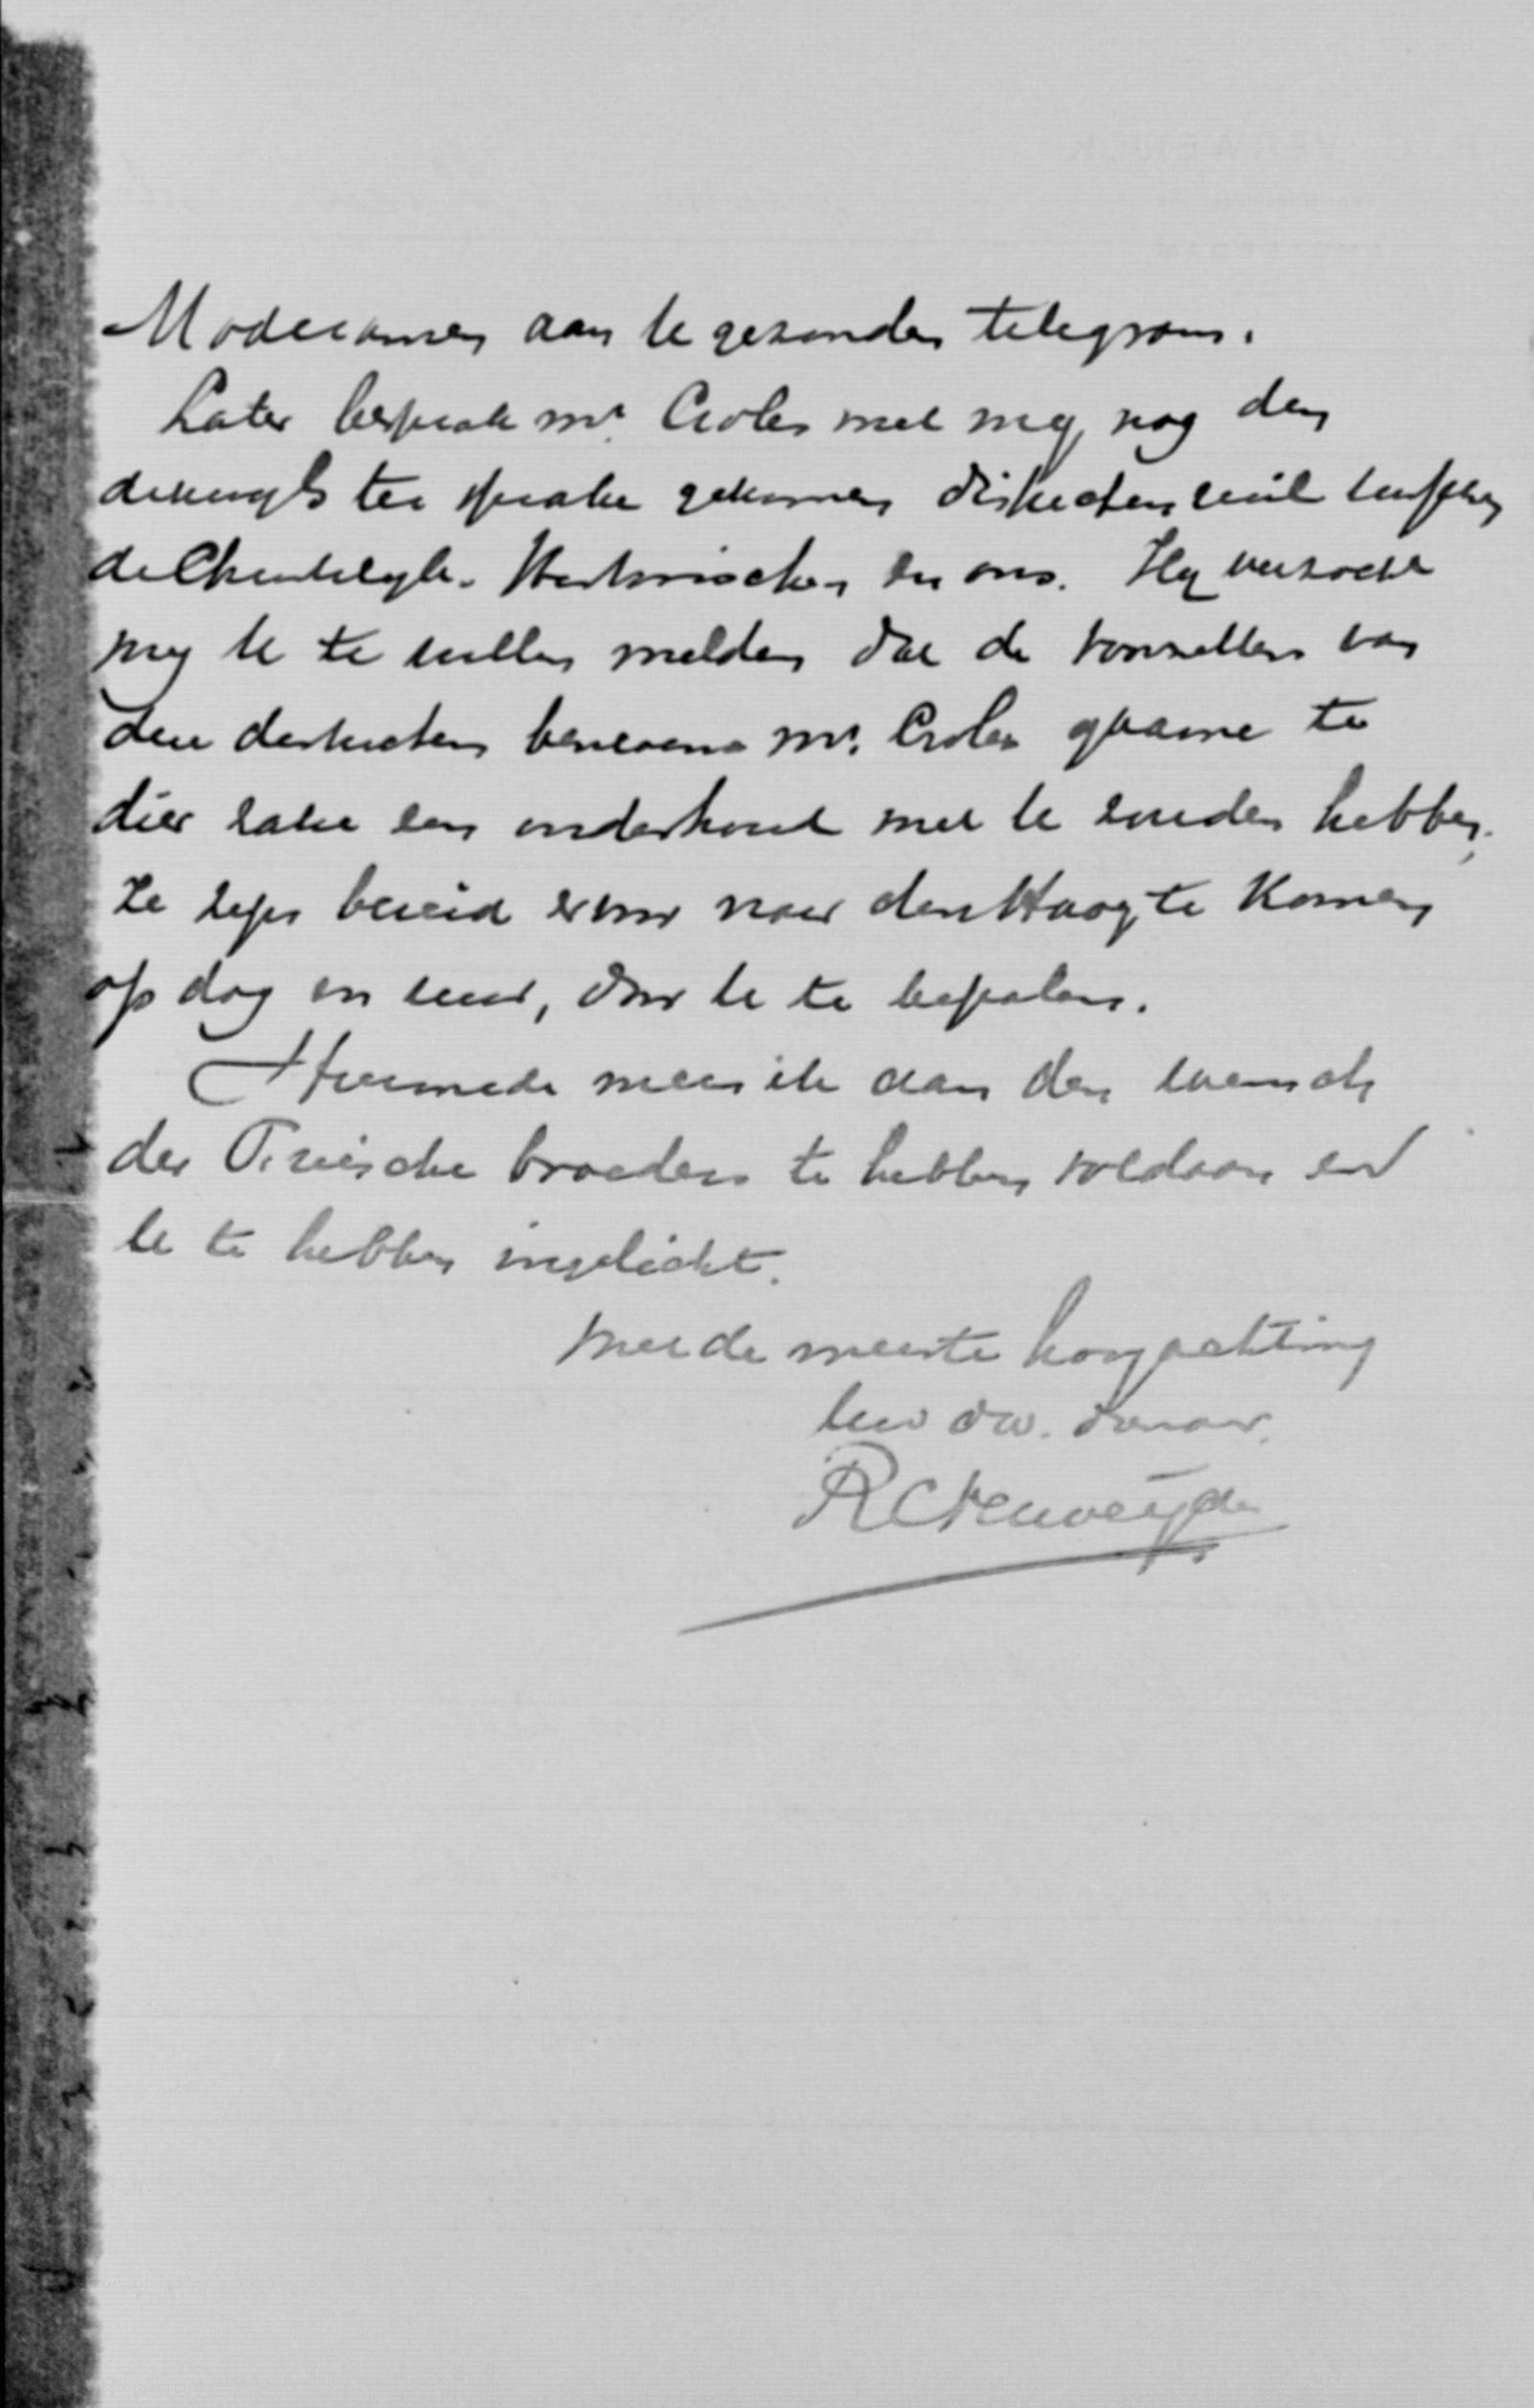 Moderamen aan U gezonden telegram.
Later besprak Mr. Croles met mij nog den
ter sprake gekomen districtenruil tusschen
de Christelijk-Historischen en ons. Hij verzocht
mij U te willen melden dat de voorzitters van
den districten benevens Mr. Croles gaarne te
dier zake een onderhoud met U zouden hebben.
Ze zijn bereid ervoor naar den Haag te komen
op dag en uur, door U te bepalen.
Hiermede meen ik aan den wensch
der Friesche broeders te hebben voldaan en
U te hebben ingelicht.
Met de meeste hoogachting
Uw dw. dienaar